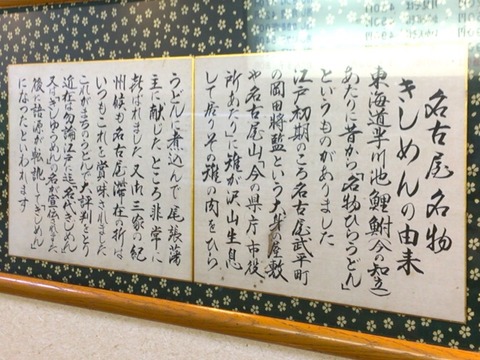 名古屋名物
きしめんの由来
東海道芋川池鯉鮒(今の知立)
あたりに昔から「名物ひらうどん」
というものがありました
江戸初期のころ名古屋武平町
の岡田将監という大身の屋敷
や名古屋山「今の県庁・市役
所あたり」に雉が沢山生息
して居りその雉の肉をひら
うどんに煮込んで尾張藩
主に献じたところ非常に
喜ばれました 又御三家の紀
州候も名古屋滞在の折は
いつもこれを賞味されました
これがまちのうどんで大評判をとり
近在は勿論江戸に迄「名代きしめん」
又は「きじめん」の名が宣伝されました
後に語源が転訛して「きしめん」
になったといわれます